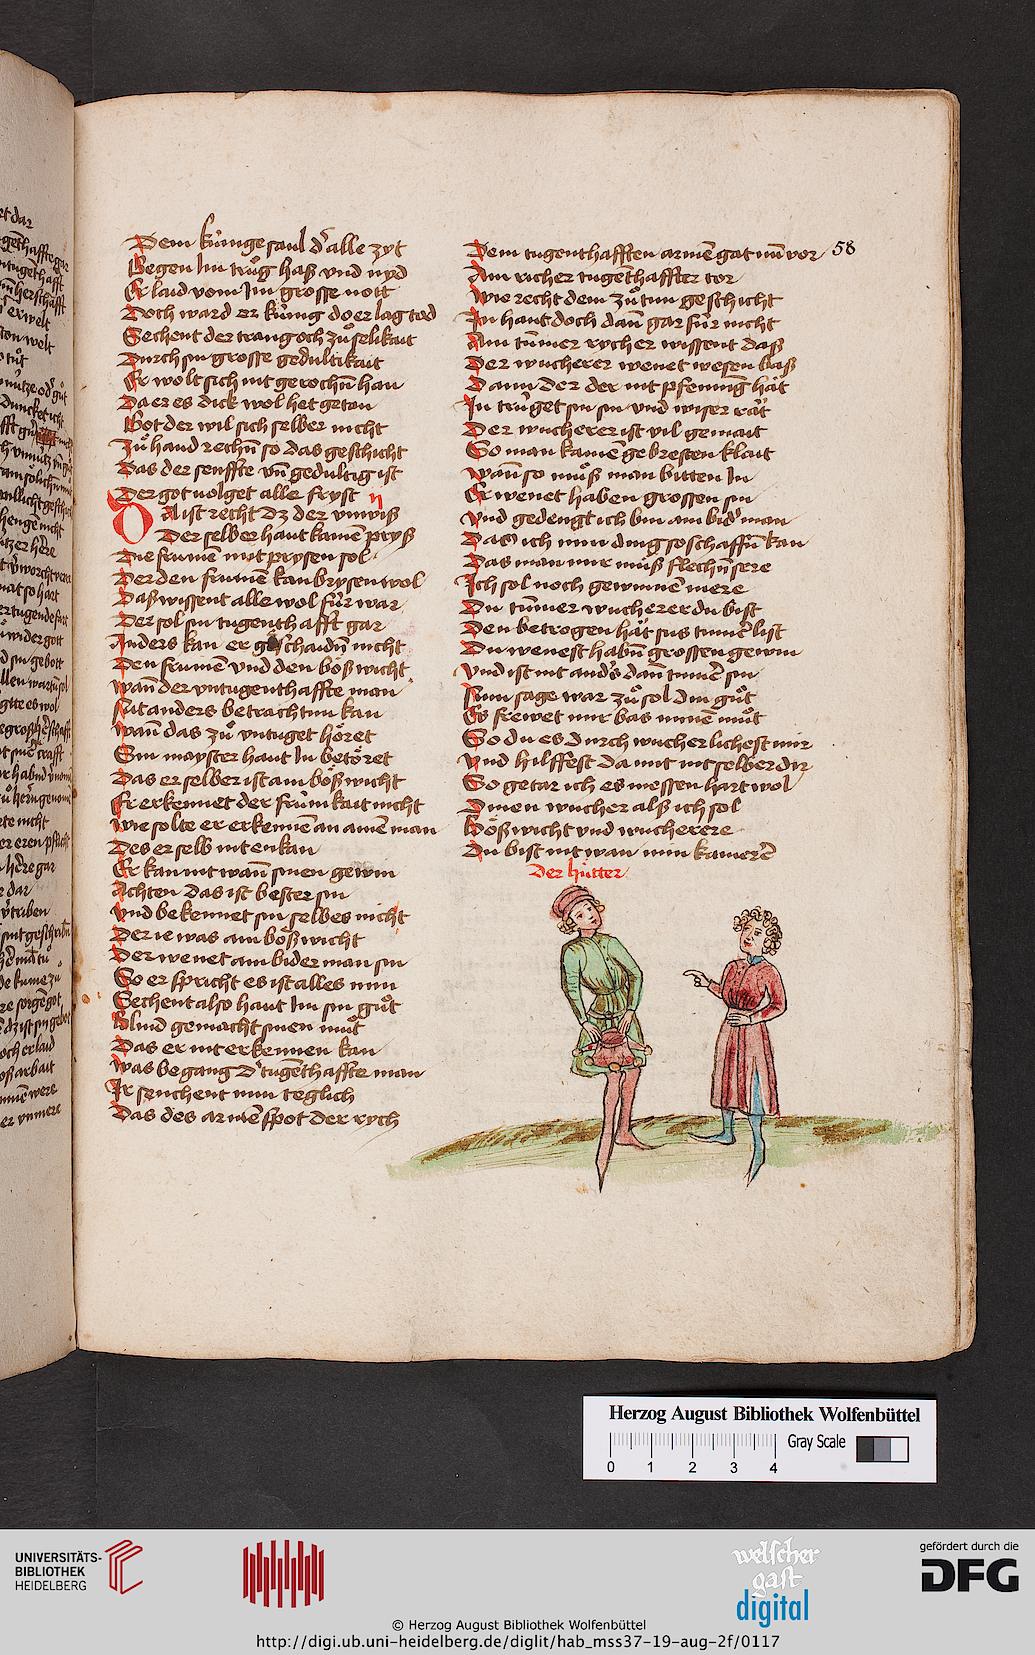 58
Dem künge saul d' alle zyt
Gegen Im trůg haß vnd nyd
Er laid vom Im grosse nott
Doch ward er küng do er lag tod
Sechent der trang och zů selikait
Durch sin grosse gedultikait
Er wolt sich nit gerochn̄ han
Da er es dick wol het getan
Got der wil sich selber nicht
Zů hand rechn̄ so das geschicht
Das der senffte vn̄ gedultig ist
Der got uolget alle fryst
Das ist recht dz der vnwiß
Der selber haut kainē pryß
Die frumē mit prysen sol
Der den frumē kan brysen wol
Daß wissent alle wol für war
Der sol sin tugenthafft gar
Anders kan er geschaidn̄ nicht
Den frumē vnd den bößwicht
wan̄ der vntugenthaffte man
Nit anders betrachtun kan
wan̄ das zů vntuget höret
Sin mayster haut In betöret
Das er selber ist am bößwicht
Er erkennet der frümkait nicht
wie solte er erkennē an ainē man
Des er selb nit enkan
Er kan nit wan̄ sinen gewin
Achten das ist bester sin
vnd bekennet sin selbes nicht
Der ie was ain bößwicht
Der wenet ain bider man sin
So er spricht es ist alles min
Sechent also haut Im sin gůt
Blind gemacht sinen můt
Das er nit erkennen kan
was begang d' tugēthaffte man
Ir senchent nun teglich
Das des armē spot der rych
Dem tugenthafften armē gat nun vor
Ain richer tugēthaffter tor
wie recht dem zů tun geschicht
In haut doch dan̄ gar für nicht
Ain tum̄er rycher wissent daß
Der wucherer wenet wesen baß
Dann der der nit pfenning hăt
In trüget sin sin vnd wiser răt
Der wucherer ist vil gemait
So man kainē gebresten klait
wan̄ so můß man bitten In
Er wenet haben grossen sin
vnd gedengt ich bin ain bid' man
Das ich min ding so schaffn̄ kan
Das man mir můß flechn̄ sere
Ich sol noch gewinnē mere
Du tum̄er wucherer du bist
Den betrogen hăt sus tum̄ē list
Du wenest habn̄ grossen gewin
vnd ist nit and's dan̄ tum̄ē sin
Nun sage war zů sol din gůt
Es frewet mir bas minē můt
So du es durch wucher lichest mir
vnd hilffest da mit nit selber dir
So getar ich es niessen hart wol
Dinen wucher alß ich sol
Bößwicht vnd wucherere
Du bist nit wan min kamererē
Der hütter
Herzog August Bibliothek Wolfenbüttel
Gray Scale
0 1 2 3 4
UNIVERSITÄTS-
BIBLIOTHEK
HEIDELBERG
welscher
gast
digital
gefördert durch die
DFG
© Herzog August Bibliothek Wolfenbüttel
http://digi.ub.uni-heidelberg.de/diglit/hab_mss37-19-aug-2f/0117